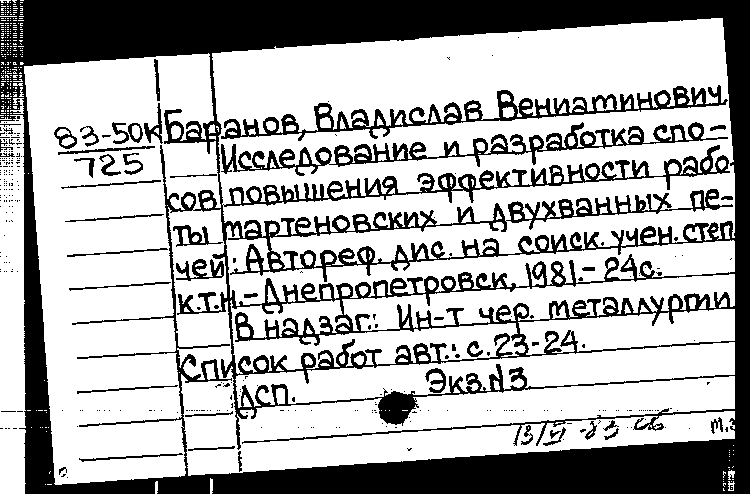 83-50К Баранов, Владислав Вениаминович.
725 Исследование и разработка спо-
сов повышения эффективности рабо-
ты мартеновских и двухванных пе-
чей: Автореф. дис. на соиск. учен. степ.
к.т.н.-Днепропетровск, 1981.-24с.
В надзаг.: Ин-т чер. металлургии
Список работ авт.: с.23-24.
ДСП. Экз.N3
13/VI -83